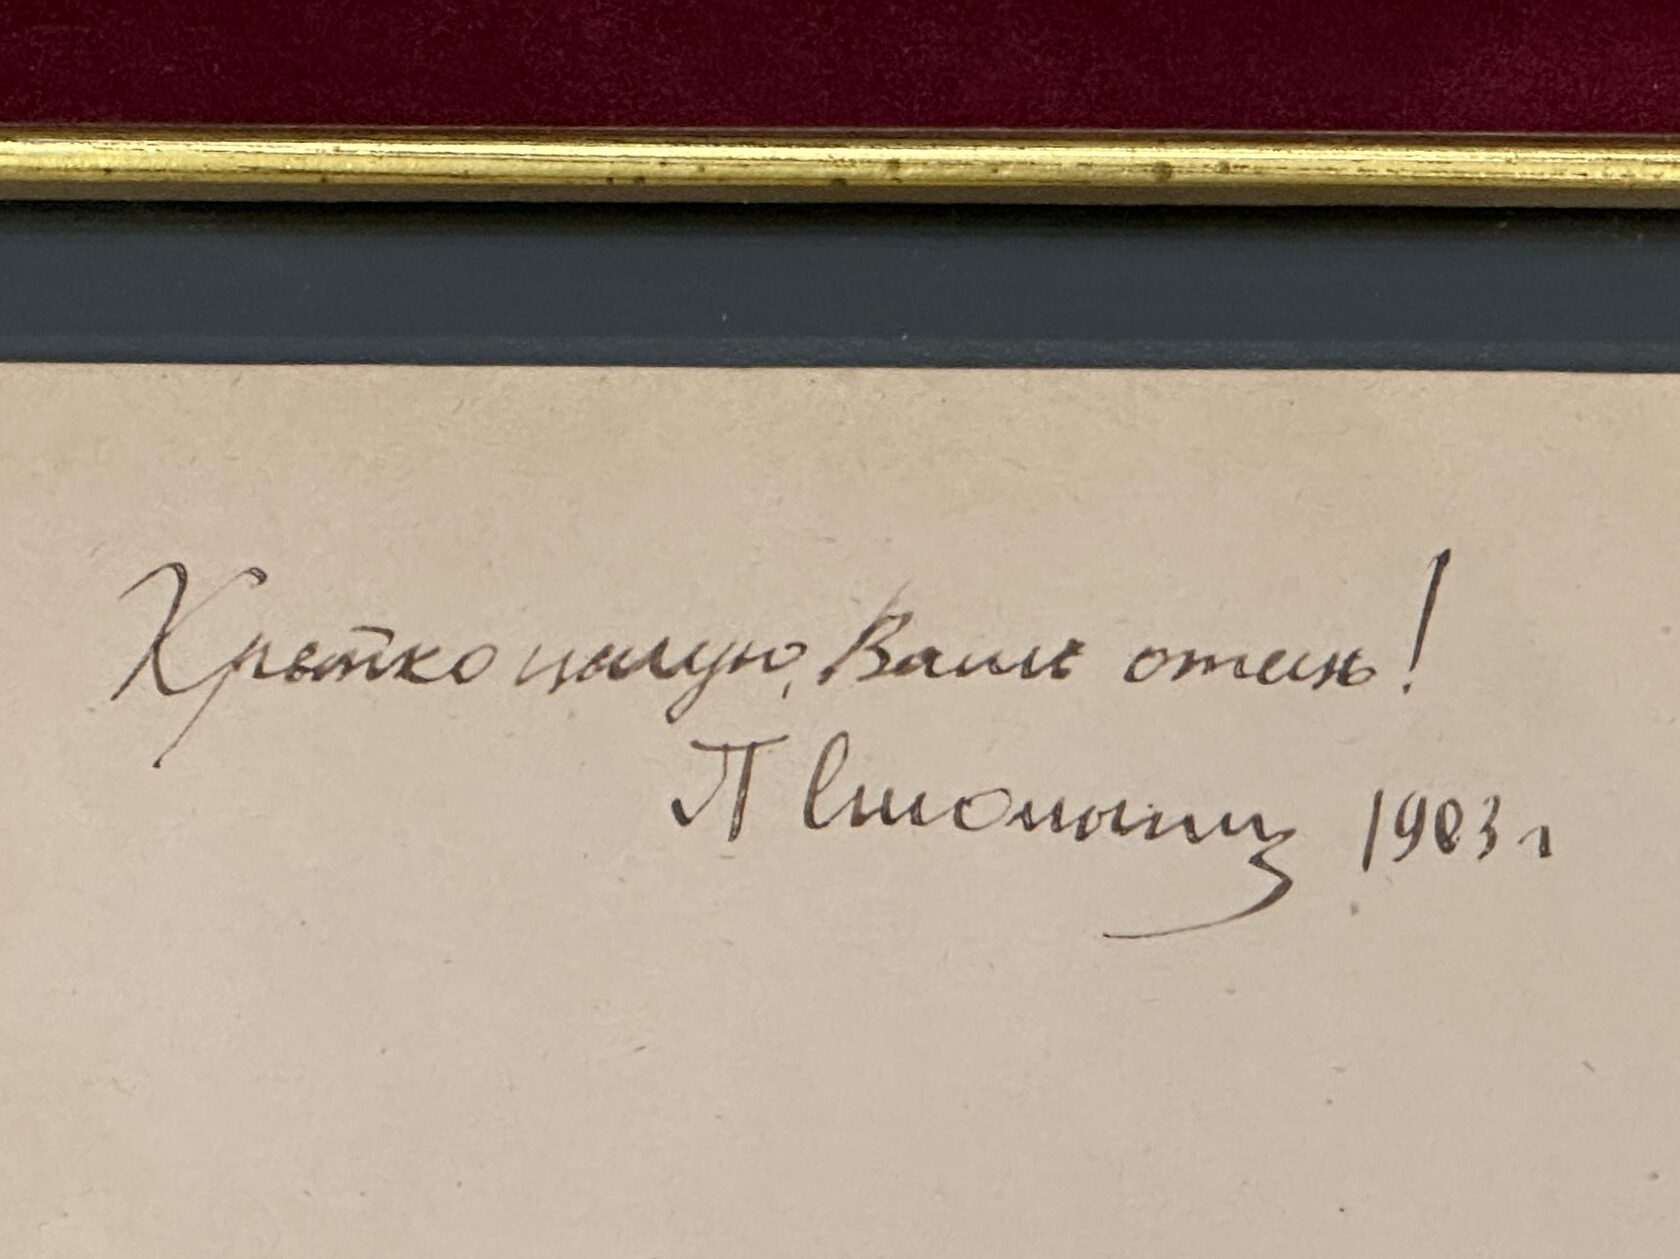 Крѣпко цѣлую, Вашъ отецъ!
П Столыпинъ 1903 г